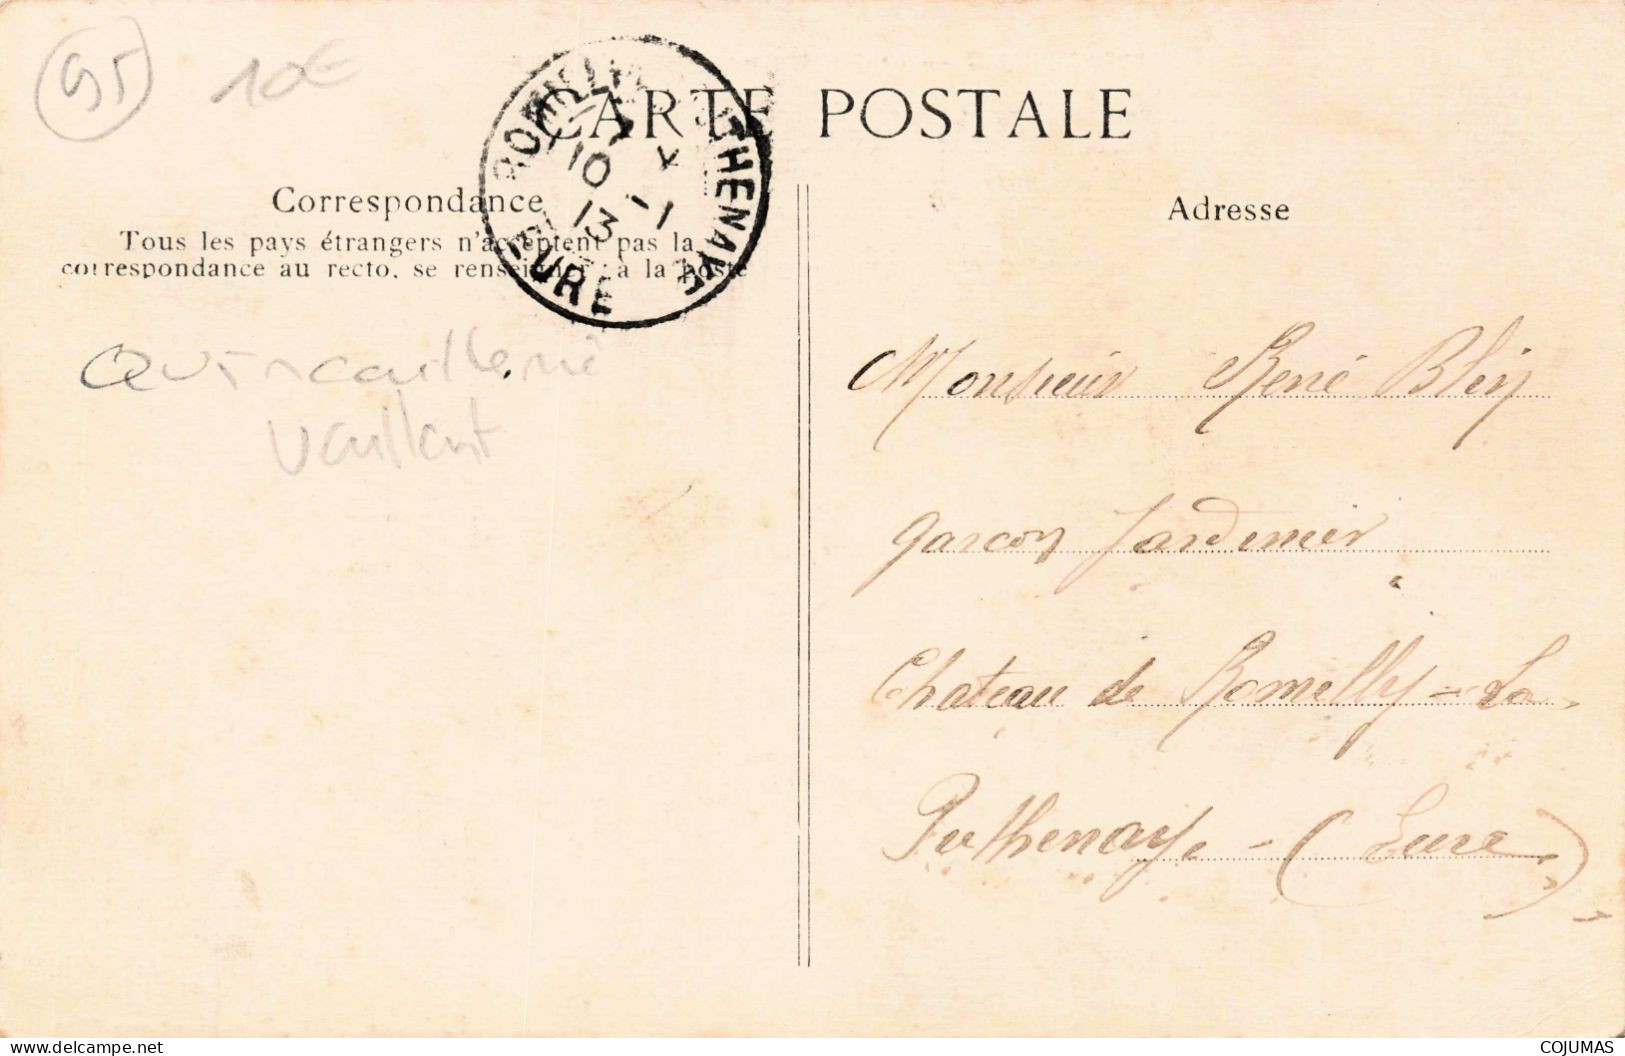 95
10€
CARTE POSTALE
ROMILLY PUTHENAYE
10
13 11
EURE
Correspondance
Tous les pays étrangers n'acceptent pas la
correspondance au recto, se renseigner à la poste
Adresse
Quincaillerie
Vaillant
Monsieur René Blin
garcon Jardinier
Chateau de Romilly=La
Puthenaye - (Eure)
delcampe.net
COJUMAS